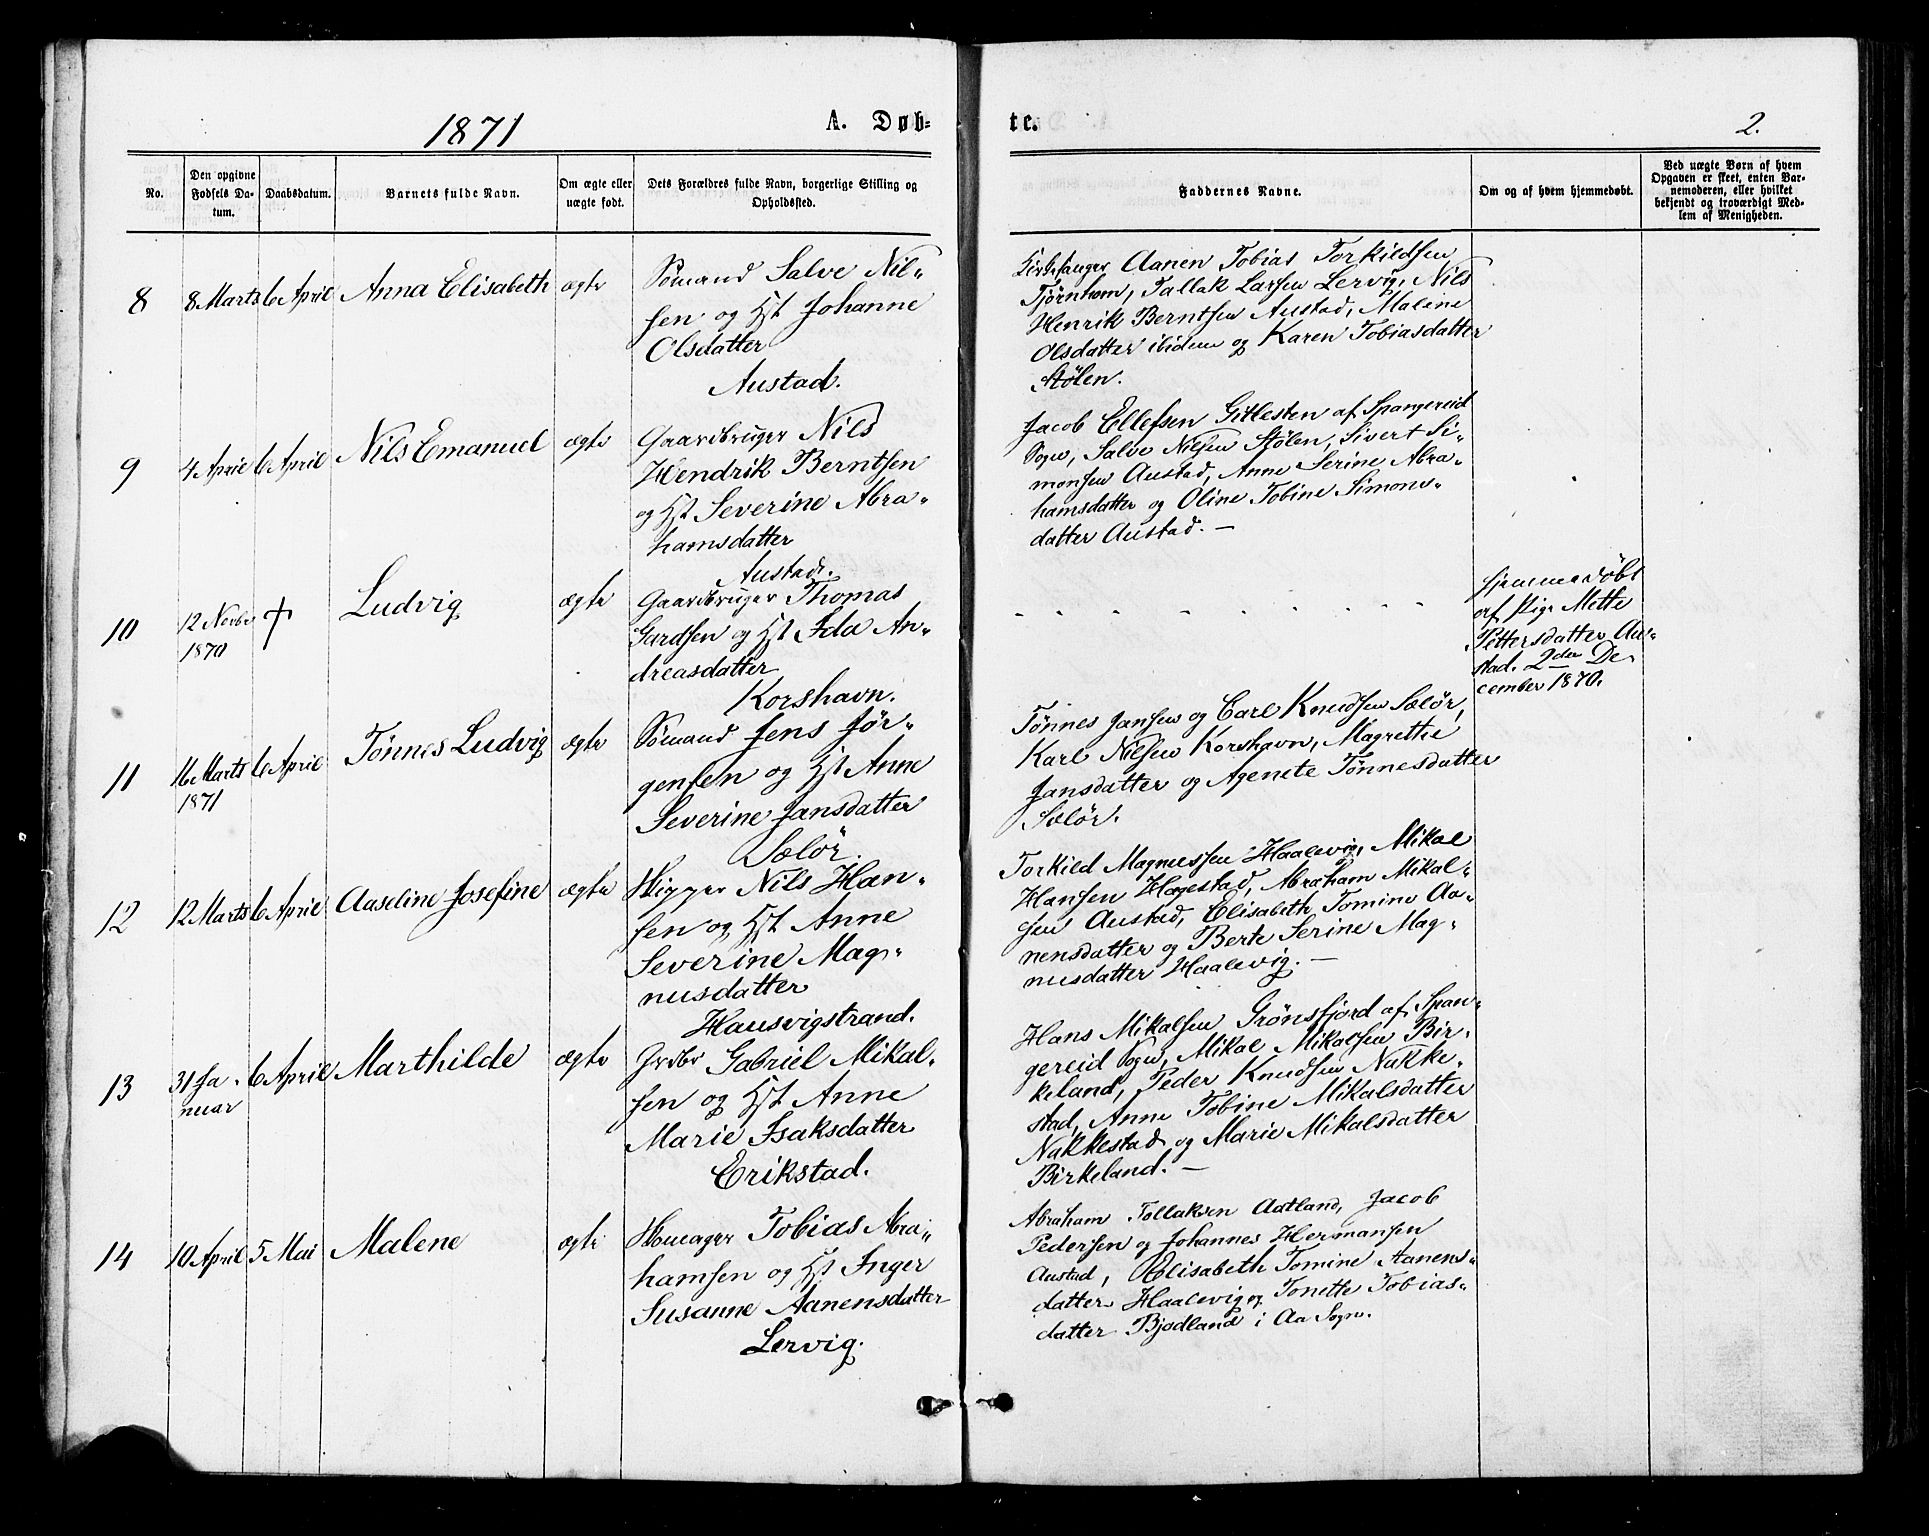 1871
A. Døb-
te.
2.
No.
Den opgivne
Fødsels Da-
tum.
Daabsdatum.
Barnets fulde Navn.
Om ægte eller
uægte født.
Dets Forældres fulde Navn, borgerlige Stilling og
Opholdssted.
Faddernes Navne.
Om og af hvem hjemmedøbt.
Ved uægte Børn af hvem
Opgaven er skeet, enten Bar-
nemoderen, eller hvilket
bekjendt og troværdigt Med-
lem af Menigheden.
8
8 Marts
6 April
Anna Elisabeth
ægte
Sømand Salve Nil-
sen og Hst Johanne
Olsdatter
Austad.
Kirkesanger Aanen Tobias Torkildsen
Tjørnhom, Tallak Larsen Lervig, Nils
Henrik Berntsen Austad, Maline
Olsdatter ibidem og Karen Tobiasdatter
Stølen.
9
4 April
6 April
Nils Emanuel
ægte
Gaardbruger Nils
Hendrik Berntsen
og Hst Severine Abra-
hamsdatter
Austad.
Jacob Ellefsen Gitlesten af Spangereid
Sogn, Salve Nilsen Stølen, Sivert Si-
monsen Austad, Anne Serine Abra-
hamsdatter og Oline Tobine Simons-
datter Austad. —
10
12 Novbr
1870
†
Ludvig
ægte
Gaardbruger Thomas
Gardsen og Hst Ida An-
dreasdatter
Korshavn.
- - - - - - - -
Hjemmedøbt
af Pige Mette
Pettersdatter Au-
stad. 2den De-
cember 1870.
11
16 Marts
1871
6 April
Tønnes Ludvig
ægte
Sømand Jens Jør-
gensen og Hst Anne
Severine Jansdatter
Sælør.
Tønnes Jansen og Carl Knudsen Sælør,
Karl Nilsen Korshavn, Magrethe
Jansdatter og Agenete Tønnesdatter
Sælør.
12
12 Marts
6 April
Aaseline Josefine
ægte
Nils Han-
sen og Hst Anne
Severine Mag-
nusdatter
Hausvigstrand.
Torkild Magnussen Haalevig, Mikal
Hansen Hagestad, Abraham Mikal-
sen Austad, Elisabeth Tomine Aa-
nensdatter og Berte Serine Mag-
nusdatter Haalevig. —
13
31 Ja-
nuar
6 April
Marthilde
ægte
Grdbr Gabriel Mikal-
sen og Hst Anne
Marie Isaksdatter
Erikstad.
Hans Mikalsen Grønsfjord af Span-
gereid Sogn, Mikal Mikalsen Bir-
keland, Peder Knudsen Nakke-
stad, Anne Tobine Mikalsdatter
Nakkestad og Marie Mikalsdatter
Birkeland. —
14
10 April
5 Mai
Malene
ægte
Tobias Abra-
hamsen og Hst Inger
Susanne Aanensdatter
Lervig.
Abraham Tollaksen Aatland, Jacob
Pedersen og Johannes Hermansen
Austad, Elisabeth Tomine Aanens-
datter Haalevig og Tonette Tobias-
datter Bjødland i Aa Sogn.